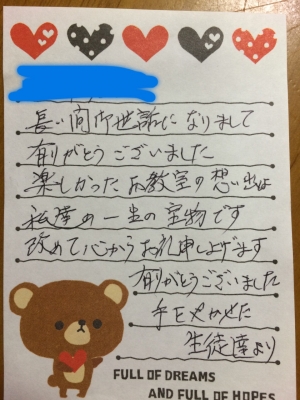 長い間御世話になりまして
有りがとうございました
楽しかったお教室の想い出は
私達の一生の宝物です
改めて心からお礼申し上げます
有りがとうございました
手をやかせた
生徒達より
FULL OF DREAMS
AND FULL OF HOPES